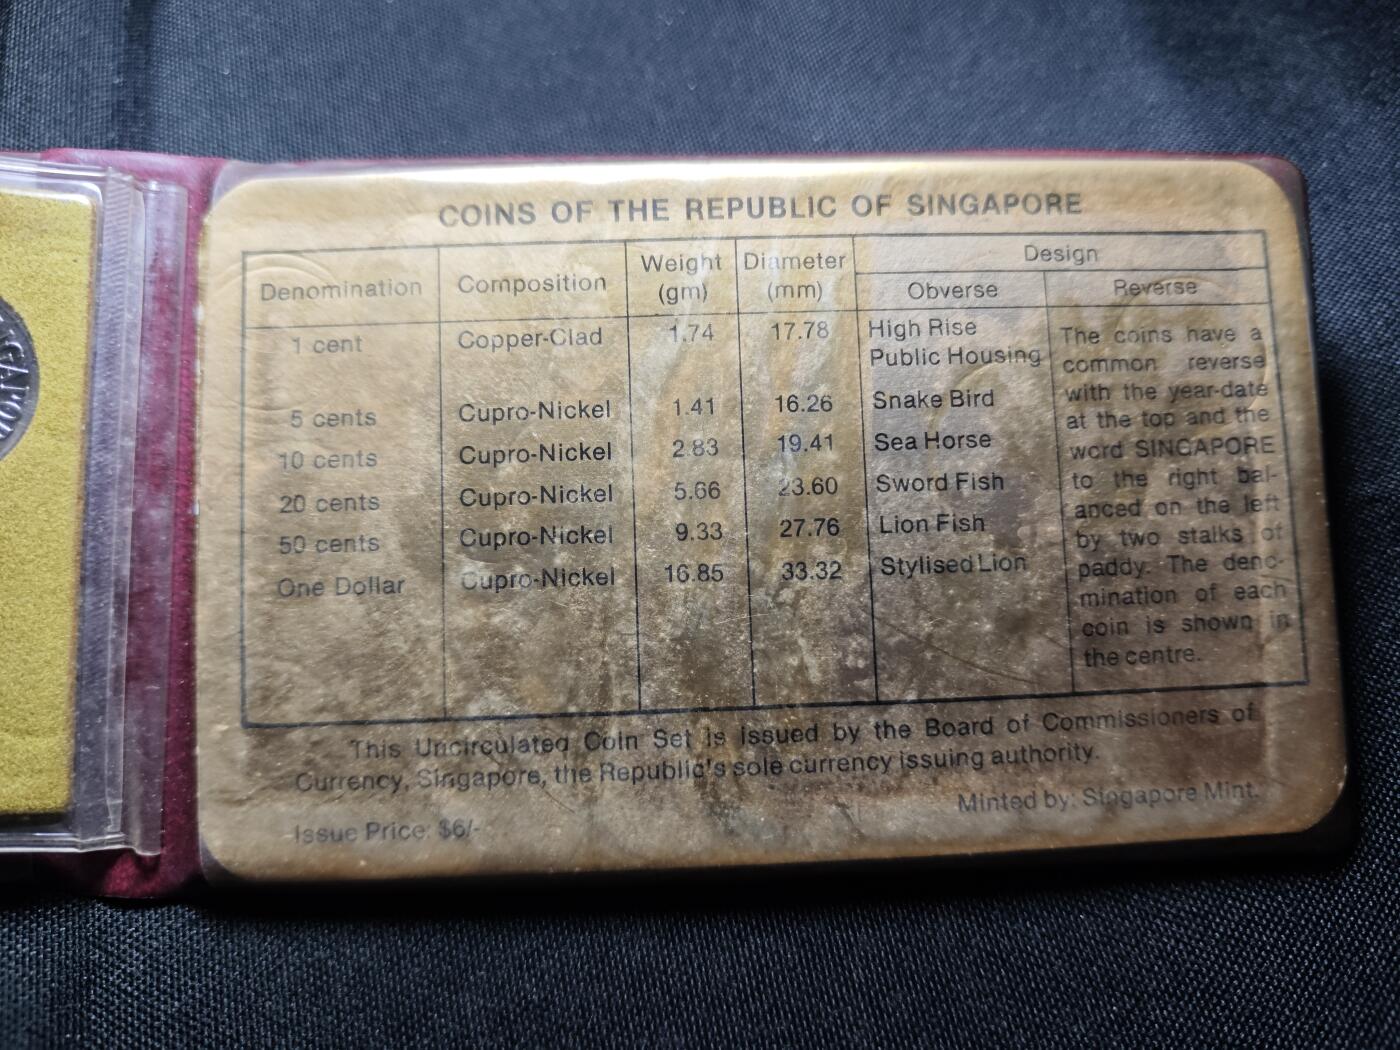 COINS OF THE REPUBLIC OF SINGAPORE
Denomination Composition Weight (gm) Diameter (mm) Design
Obverse Reverse
1 cent Copper-Clad 1.74 17.78 High Rise Public Housing
5 cents Cupro-Nickel 1.41 16.26 Snake Bird
10 cents Cupro-Nickel 2.83 19.41 Sea Horse
20 cents Cupro-Nickel 5.66 23.60 Sword Fish
50 cents Cupro-Nickel 9.33 27.76 Lion Fish
One Dollar Cupro-Nickel 16.85 33.32 Stylised Lion
The coins have a
common reverse
with the year-date
at the top and the
word SINGAPORE
to the right bal-
anced on the left
by two stalks of
paddy. The deno-
mination of each
coin is shown in
the centre.
This Uncirculated Coin Set is issued by the Board of Commissioners of
Currency, Singapore, the Republic's sole currency issuing authority.
Minted by: Singapore Mint.
Issue Price: $6/-